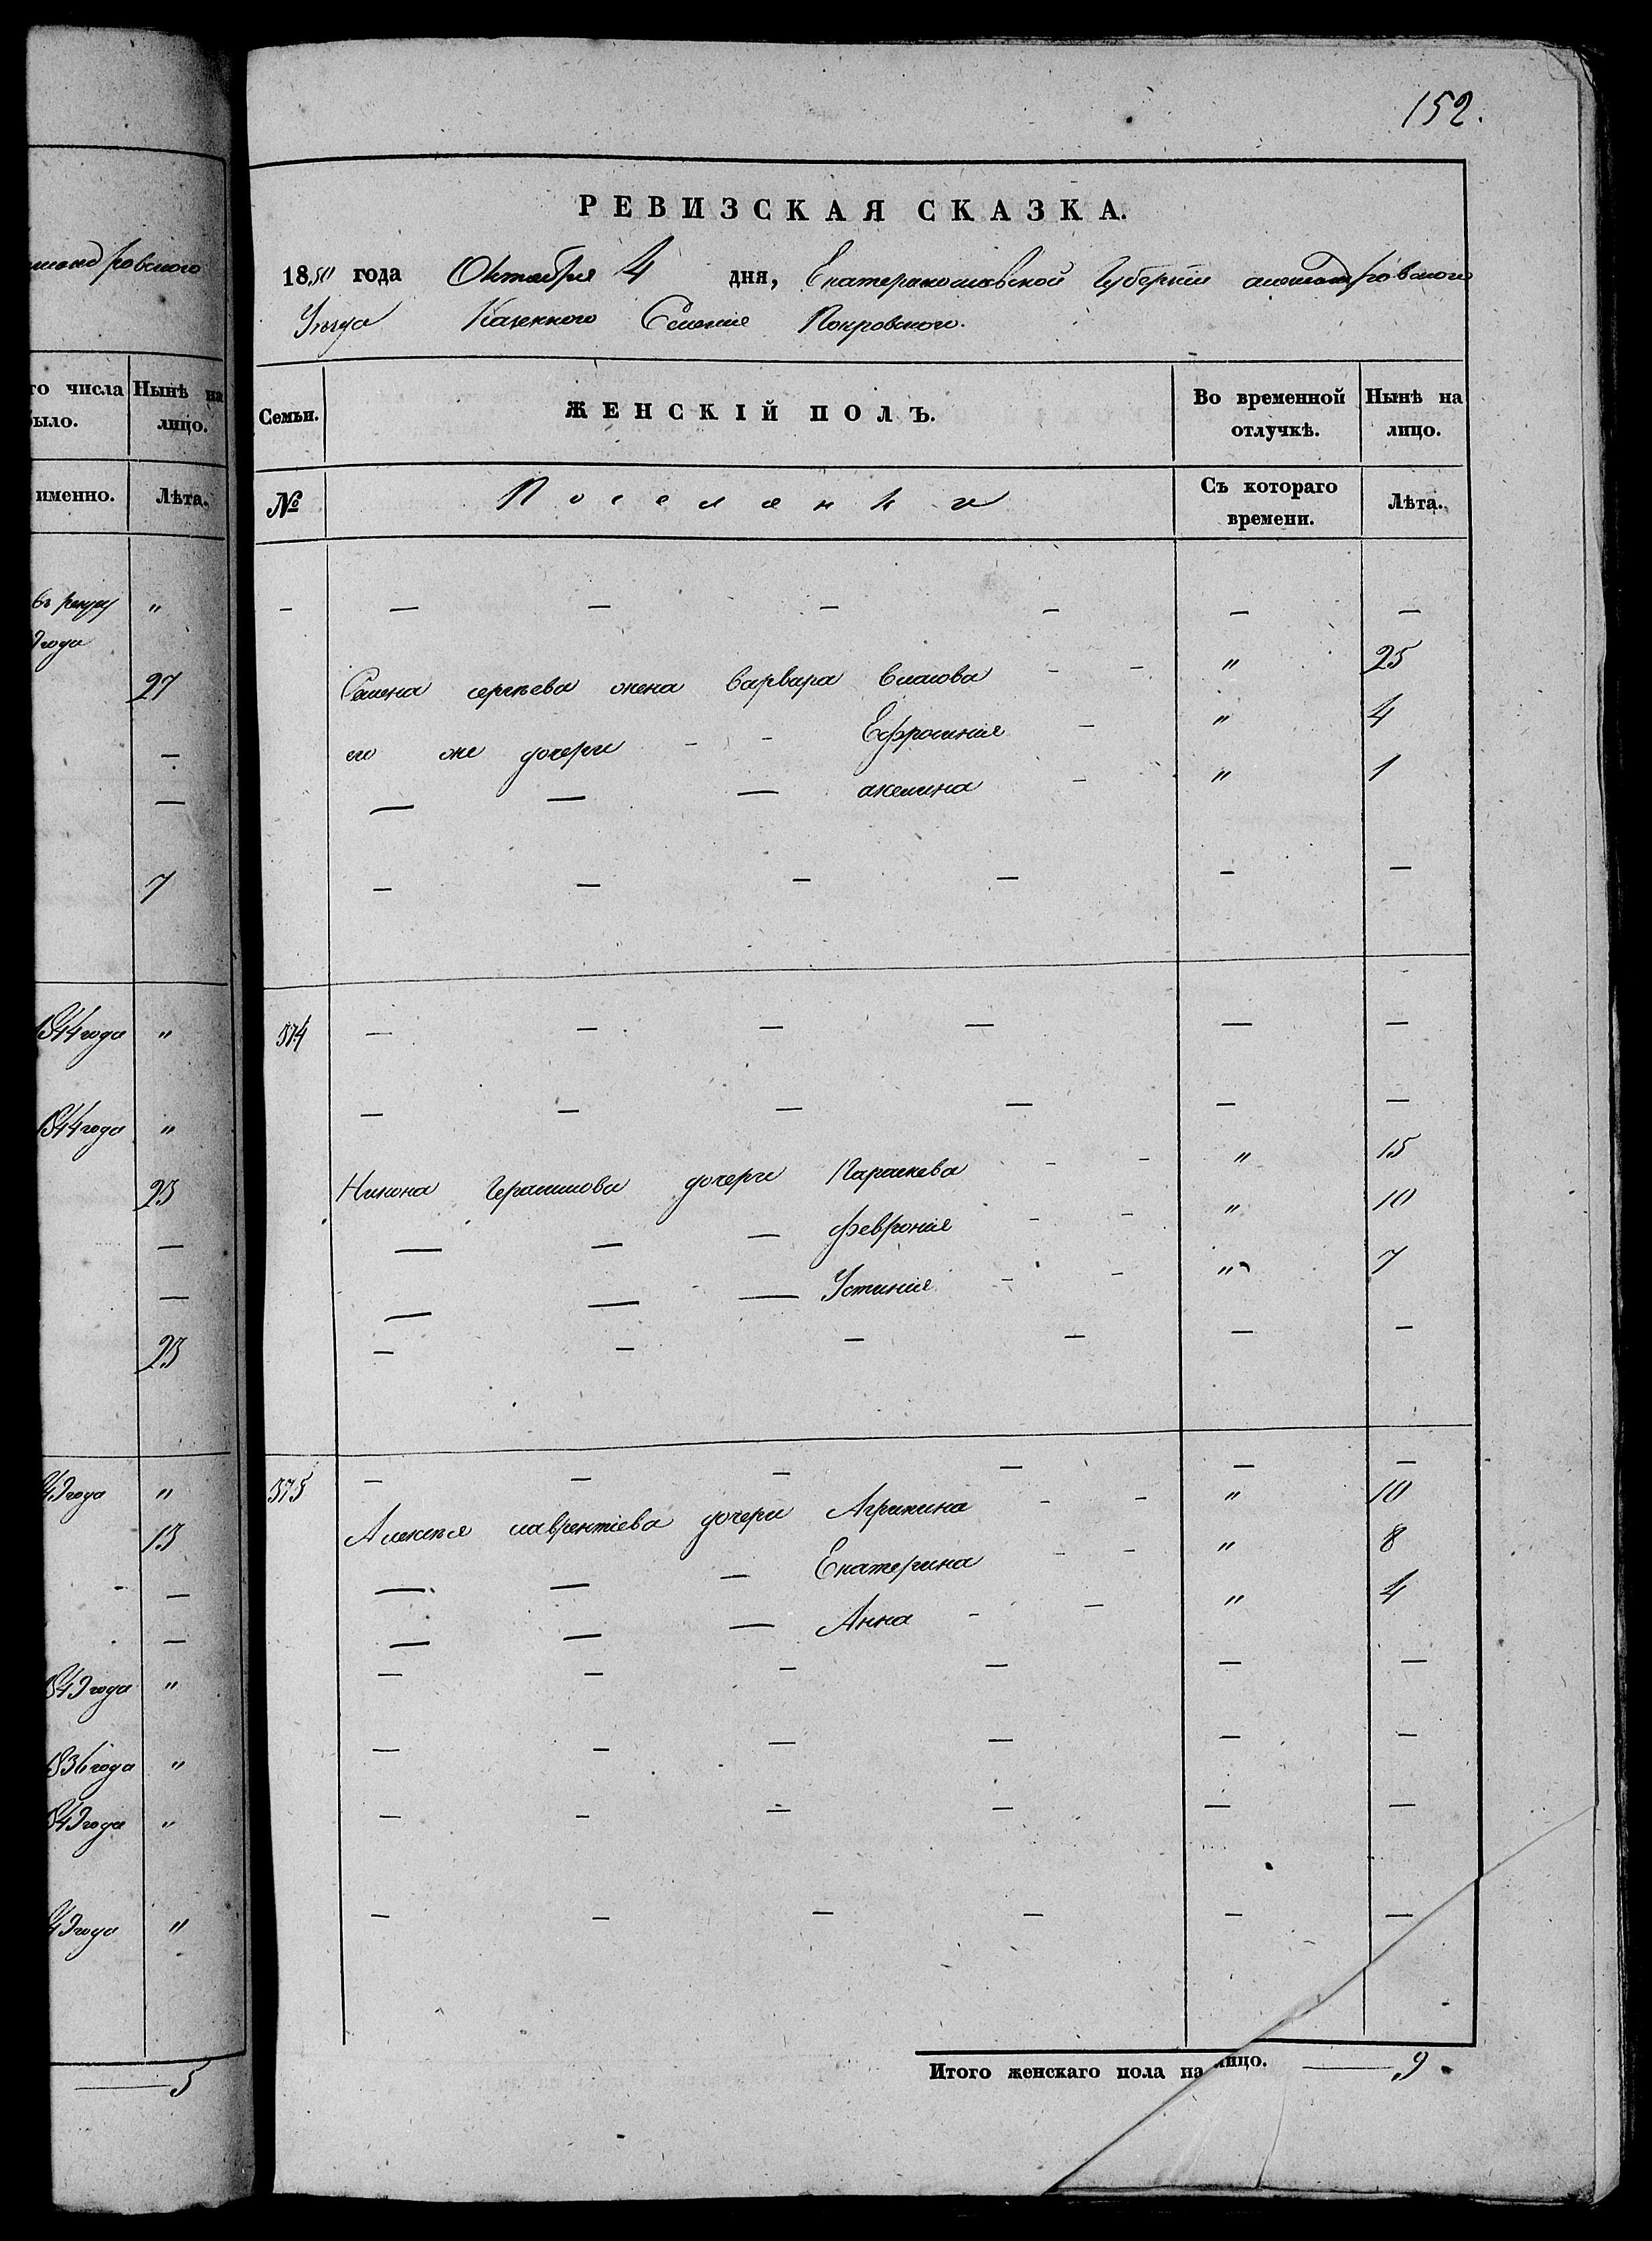 152.
мандровского
то числа Нынѣ на
было. лицо.
именно. Лѣта.
"
года
27
—
—
7
1844 года "
1844 года "
23
—
—
23
года "
13
—
—
1849 года "
1836 года "
849 года "
49 года "
— 5
РЕВИЗСКАЯ СКАЗКА.
1850 года Октября 4 дня, Екатеринославской Губернии александровского
Уезда Казенного Селения Покровского.
Семьи. ЖЕНСКІЙ ПОЛЪ. Во временной отлучкѣ. Нынѣ на лицо.
№ Поселянки Съ котораго времени. Лѣта.
— — — — — — —
Семена сергѣева жена варвара власова - - " 25
его же дочери - - Ефросиния - " 4
— — — акелина - " 1
— — — — — —
574 — — — — — —
— — — — — —
Никона Герасимова дочери Параскева - - " 15
— — — феврония - - " 10
— — — Устиния - - " 7
— — — — — —
575 — — — — — —
Алексѣя лаврентіева дочери Агрипина - - " 10
— — — Екатерина - - " 8
— — — Анна - - " 4
— — — — — —
— — — — — —
— — — — — —
— — — — — —
Итого женскаго пола на лицо. — 9.